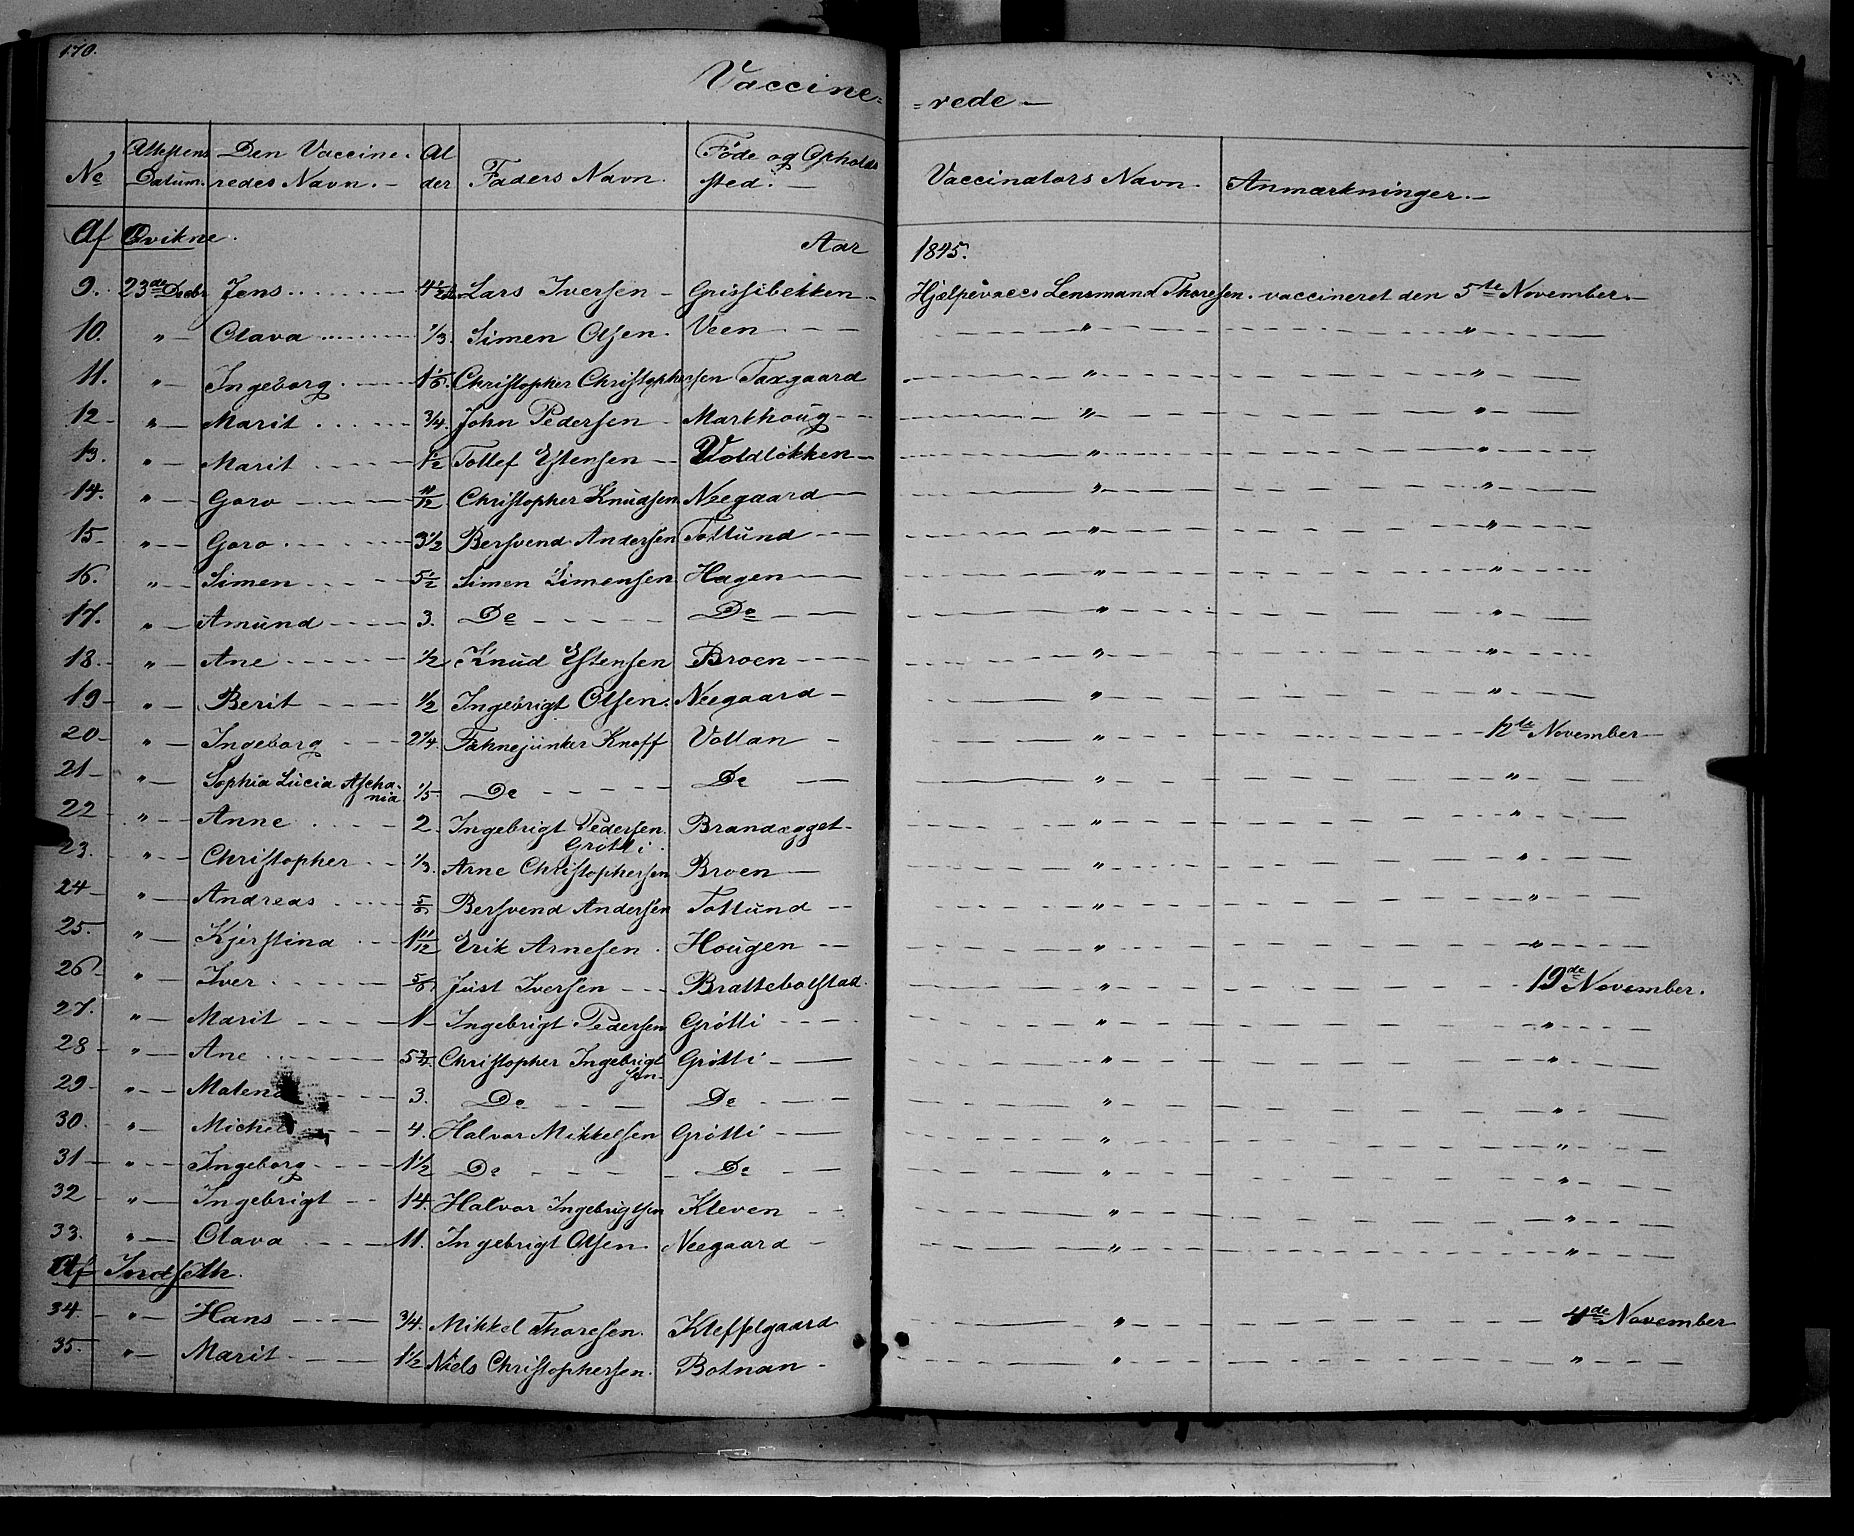 170.
Vaccine=
=rede
No
Attestens Datum.
Den Vaccineredes Navn.
Alder
Faders Navn.
Føde og Opholdssted.
Vaccinators Navn.
Anmærkninger.
Af Qvikne.
Aar 1845.
9. 23de Decbr Jens 4 1/2 Lars Iversen Grissibekken Hjelpevacc Lensmand Thoresen. vaccineret den 5te November.
10. " Olava 1/3. Simen Olsen. Veen " "
11. " Ingeborg 1 1/6. Christopher Christophersen Taxgaard " "
12 " Marit 3/4. John Pedersen Markhoug " "
13. " Marit 1 1/2 Tollef Estensen Voldløkken " "
14. " Goro 11/12 Christopher Knudsen Neegaard " "
15 " Goro 3 1/2 Bersvend Andersen Tollund " "
16. " Simen 5 1/2 Simen Simensen Hagen " "
17. " Amund 3. Do Do " "
18. " Ane 1/2 Knud Estensen Broen " "
19 " Berit 1/2 Ingebrigt Olsen. Neegaard " "
20 " Ingeborg 2 1/4. Fahnejunker Knoff Vollan " 12te November
21 " Sophia Lucia Aschania 1/5. Do Do " "
22 " Anne 2. Ingebrigt Pedersen Grøtti. Brandegget " "
23. " Christopher 1/3. Arne Christophersen Broen " "
24 " Andreas 5/6 Bersvend Andersen Tollund " "
25. " Kjerstina 1 11/12 Erik Arnesen. Hougen " "
26 " Iver 5/6 Just Iversen Brattebolstad. " 19de November.
27. " Marit 1 Ingebrigt Pedersen Grøtti " "
28 " Ane 5 Christopher Ingebrigtsen Grøtti " "
29 " Malena 3. Do Do " "
30. " Michel 4. Halvor Mikkelsen Grøtti " "
31 " Ingeborg 1 1/2 Do Do " "
32 " Ingebrigt 14. Halvor Ingebrigtsen Kleven " "
33. " Olava 11. Ingebrigt Olsen Neegaard " "
Af Indseth.
34. " Hans 3/4. Mikkel Thoresen. Kleffelgaard " 4de November
35. " Marit 1 1/2 Niels Christophersen. Botnan " "